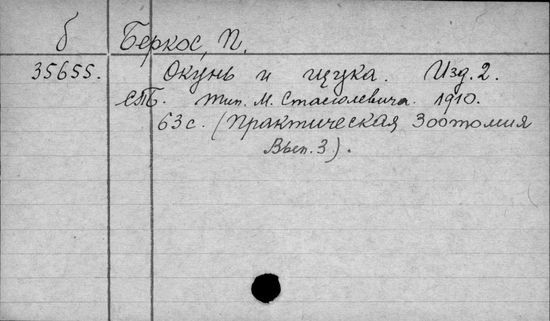 б Беркос, П.
35655. Окунь и щука. Изд. 2.
СПБ. Тип. М. Стасюлевича. 1910.
63 с. (Практическая Зоотомия
Вып. 3).